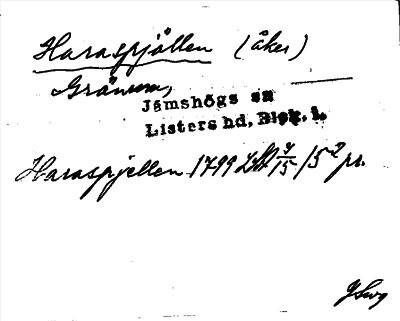 Haraspjällen (åker)
Gränum,
Jämshögs sn
Listers hd, Blek. l.
Haraspjellen 1799 LSA 7/15 /5² pr.